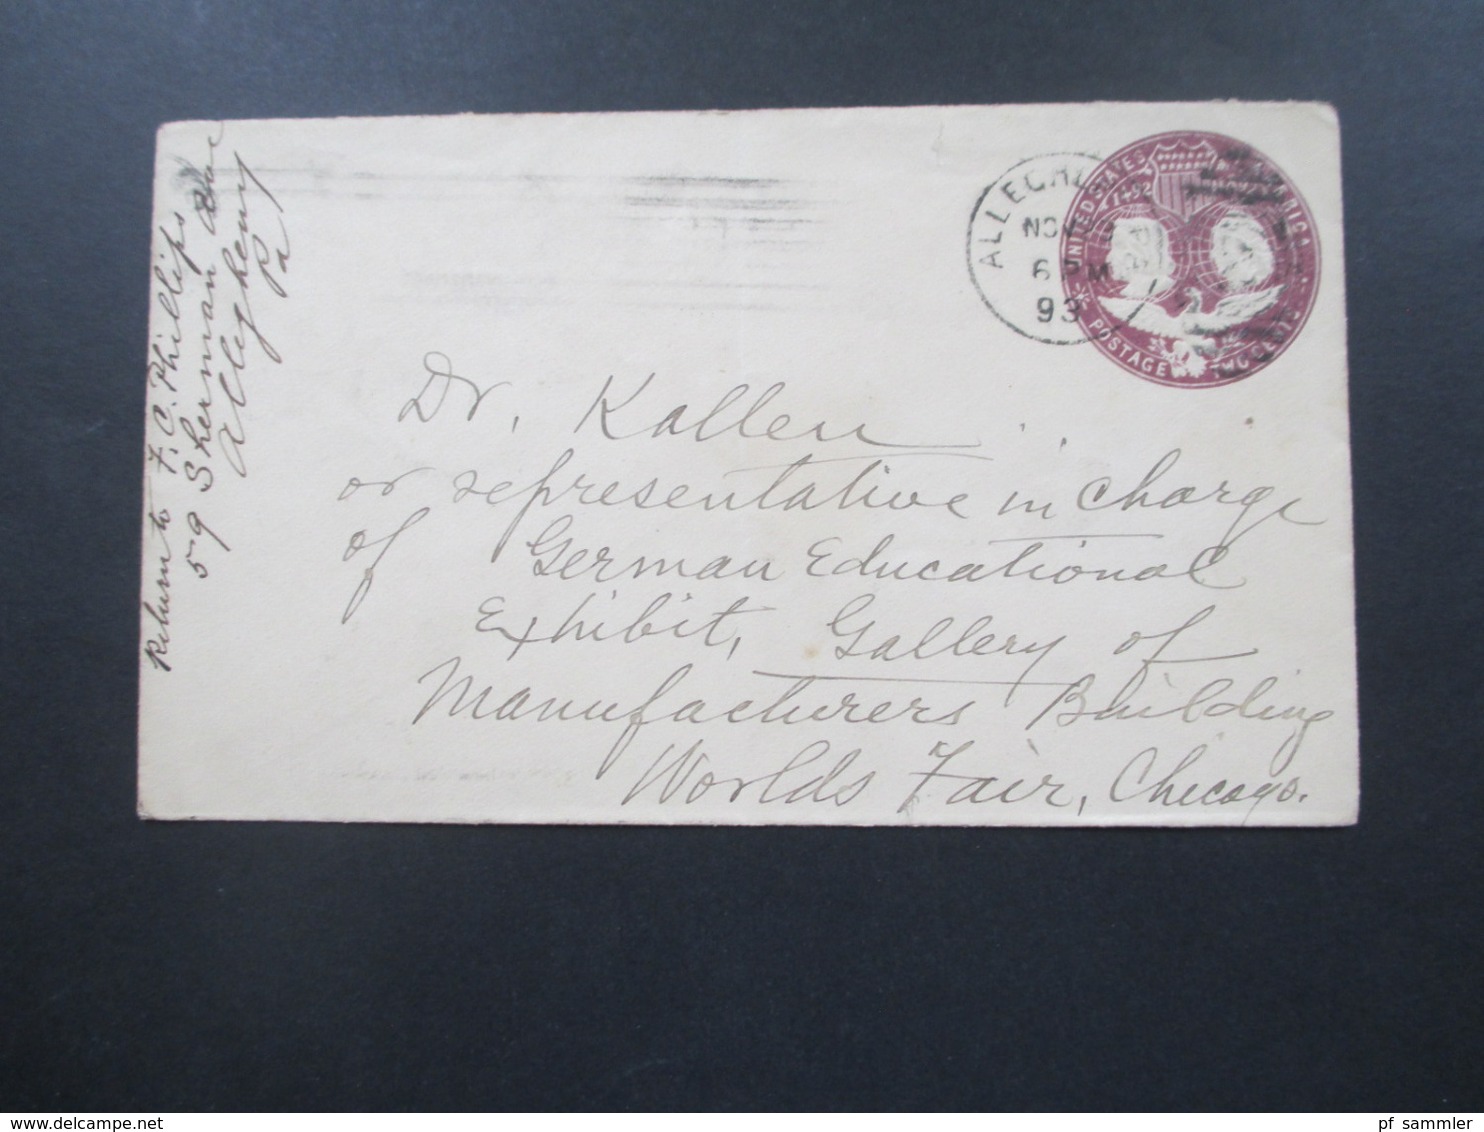 Return to F. C. Phillips
59 Sherman Ave
Allegheny
Pa
ALLEGHE
6 PM
93
UNITED STATES
1492
POSTAGE TWO CENTS
Dr. Kallen
or representative in charge
of German Educational
Exhibit, Gallery of
Manufacturers Building
Worlds Fair, Chicago.
pf_sammler